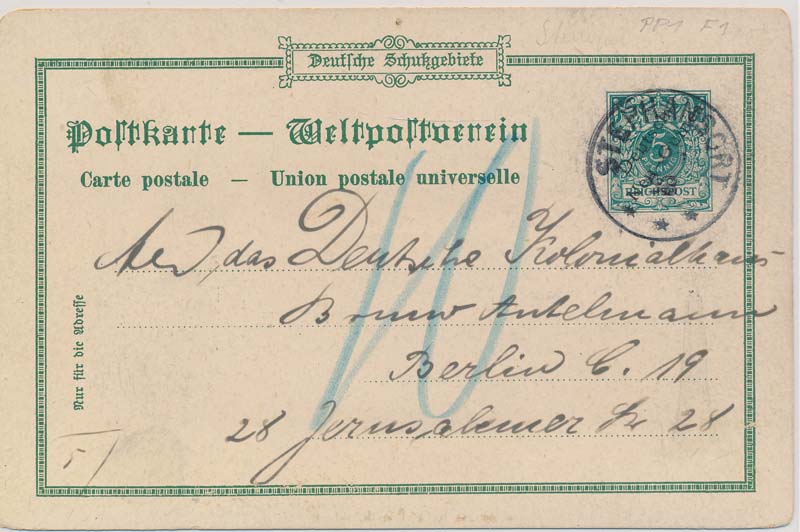 PP1 F1
Deutsche Schutzgebiete
Postkarte — Weltpostverein
Carte postale — Union postale universelle
STEPHANSORT
5
REICHSPOST
10
An das Deutsche Kolonialhaus
Bruno Antelmann
Berlin C. 19
28 Jerusalemer Str 28
Nur für die Adresse
5/